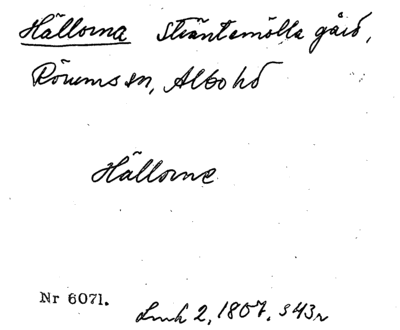 Hällorna Sträntemölla gård,
Rörums sn, Albo hd
Hällorne
Nr 6071.
Lmk 2, 1807, s 43r